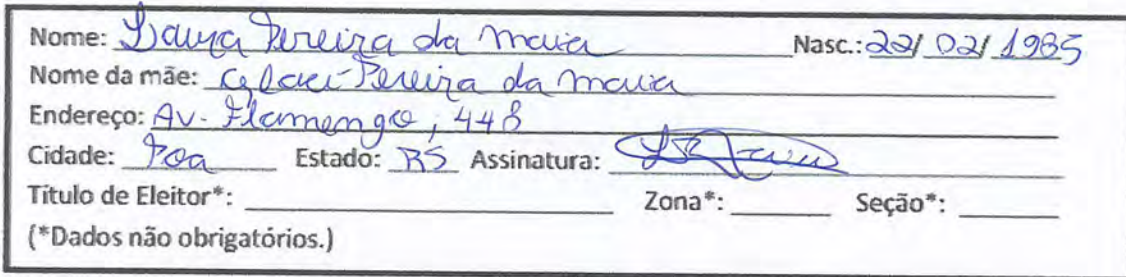 Nome: Laura Pereira da Maia Nasc.: 22/02/1985
Nome da mãe: Pereira da Maia
Endereço: Av. Flamengo, 448
Cidade: Poa Estado: RS Assinatura:
Título de Eleitor*: Zona*: Seção*:
(*Dados não obrigatórios.)